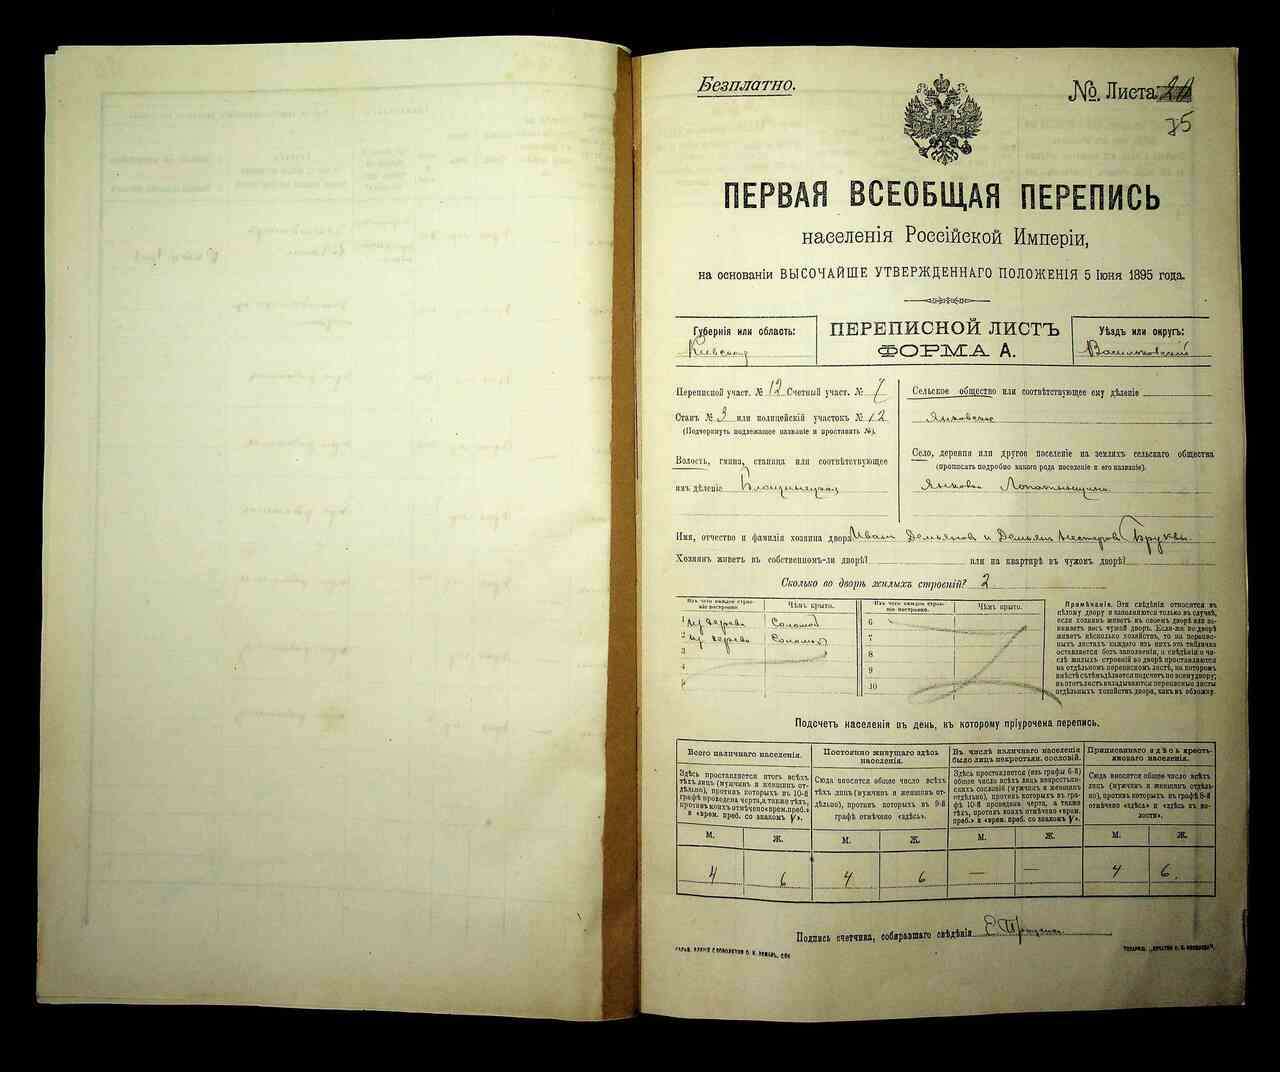 Безплатно.
№ Листа 20
75
ПЕРВАЯ ВСЕОБЩАЯ ПЕРЕПИСЬ
населенія Россійской Имперіи,
на основаніи ВЫСОЧАЙШЕ УТВЕРЖДЕННАГО ПОЛОЖЕНІЯ 5 Іюня 1895 года.
Губернія или область:
Кіевская
ПЕРЕПИСНОЙ ЛИСТЪ
ФОРМА А.
Уѣздъ или округъ:
Васильковскій
Переписной участ. № 12 Счетный участ. № 7
Станъ № 3 или полицейскій участокъ № 12
(Подчеркнуть подлежащее названіе и проставить №).
Волость, гмина, станица или соотвѣтствующее
имъ дѣленіе
Сельское общество или соотвѣтствующее ему дѣленіе
Янковское
Село, деревня или другое поселеніе на земляхъ сельскаго общества
(прописать подробно какого рода поселеніе и его названіе).
Янковка Лопатинщина
Имя, отчество и фамилія хозяина двора Иванъ Демьяновъ и Демьянъ Нестеровъ
Хозяинъ живетъ въ собственномъ-ли дворѣ? или на квартирѣ въ чужомъ дворѣ?
Сколько во дворѣ жилыхъ строеній? 2
Изъ чего каждое строеніе построено. Чѣмъ крыто. Изъ чего каждое строеніе построено. Чѣмъ крыто.
1 изъ дерева Соломой 6
2 изъ дерева Соломой 7
3 8
4 9
5 10
Примѣчанія. Эти свѣдѣнія относятся къ
цѣлому двору и заполняются только въ случаѣ,
если хозяинъ живетъ въ своемъ дворѣ или занимаетъ весь чужой дворъ. Если-же во дворѣ
живетъ нѣсколько хозяйствъ, то на переписныхъ листахъ каждаго изъ нихъ эта табличка
оставляется безъ заполненія, а свѣдѣнія о числѣ жилыхъ строеній во дворѣ проставляются
на отдѣльномъ переписномъ листѣ, на которомъ
вмѣстѣ съ тѣмъ дѣлается подсчетъ по всему двору;
въ этотъ листъ вкладываются переписные листы
отдѣльныхъ хозяйствъ двора, какъ въ обложку.
Подсчетъ населенія въ день, къ которому пріурочена перепись.
Всего наличнаго населенія.
Здѣсь проставляется итогъ всѣхъ
тѣхъ лицъ (мужчинъ и женщинъ отдѣльно), противъ которыхъ въ 10-й
графѣ проведена черта, а также тѣхъ,
противъ коихъ отмѣчено «врем. преб.»
и «врем. преб. со знакомъ V».
Постоянно живущаго здѣсь
населенія.
Сюда вносится общее число всѣхъ
тѣхъ лицъ (мужчинъ и женщинъ отдѣльно), противъ которыхъ въ 9-й
графѣ отмѣчено «здѣсь».
Въ числѣ наличнаго населенія
было лицъ некрестьян. сословій.
Здѣсь проставляется (изъ графы 6-й)
общее число всѣхъ лицъ некрестьянскихъ сословій (мужчинъ и женщинъ
отдѣльно), противъ которыхъ въ графѣ 10-й проведена черта, а также
тѣхъ, противъ коихъ отмѣчено «врем.
преб.» и «врем. преб. со знакомъ V».
Приписаннаго здѣсь крестьянскаго населенія.
Сюда вносится общее число всѣхъ
лицъ (мужчинъ и женщинъ отдѣльно), противъ которыхъ въ графѣ 8-й
отмѣчено «здѣсь» и «здѣсь въ волости».
М. Ж. М. Ж. М. Ж. М. Ж.
4 6 4 6 — — 4 6.
Подпись счетчика, собиравшаго свѣдѣнія